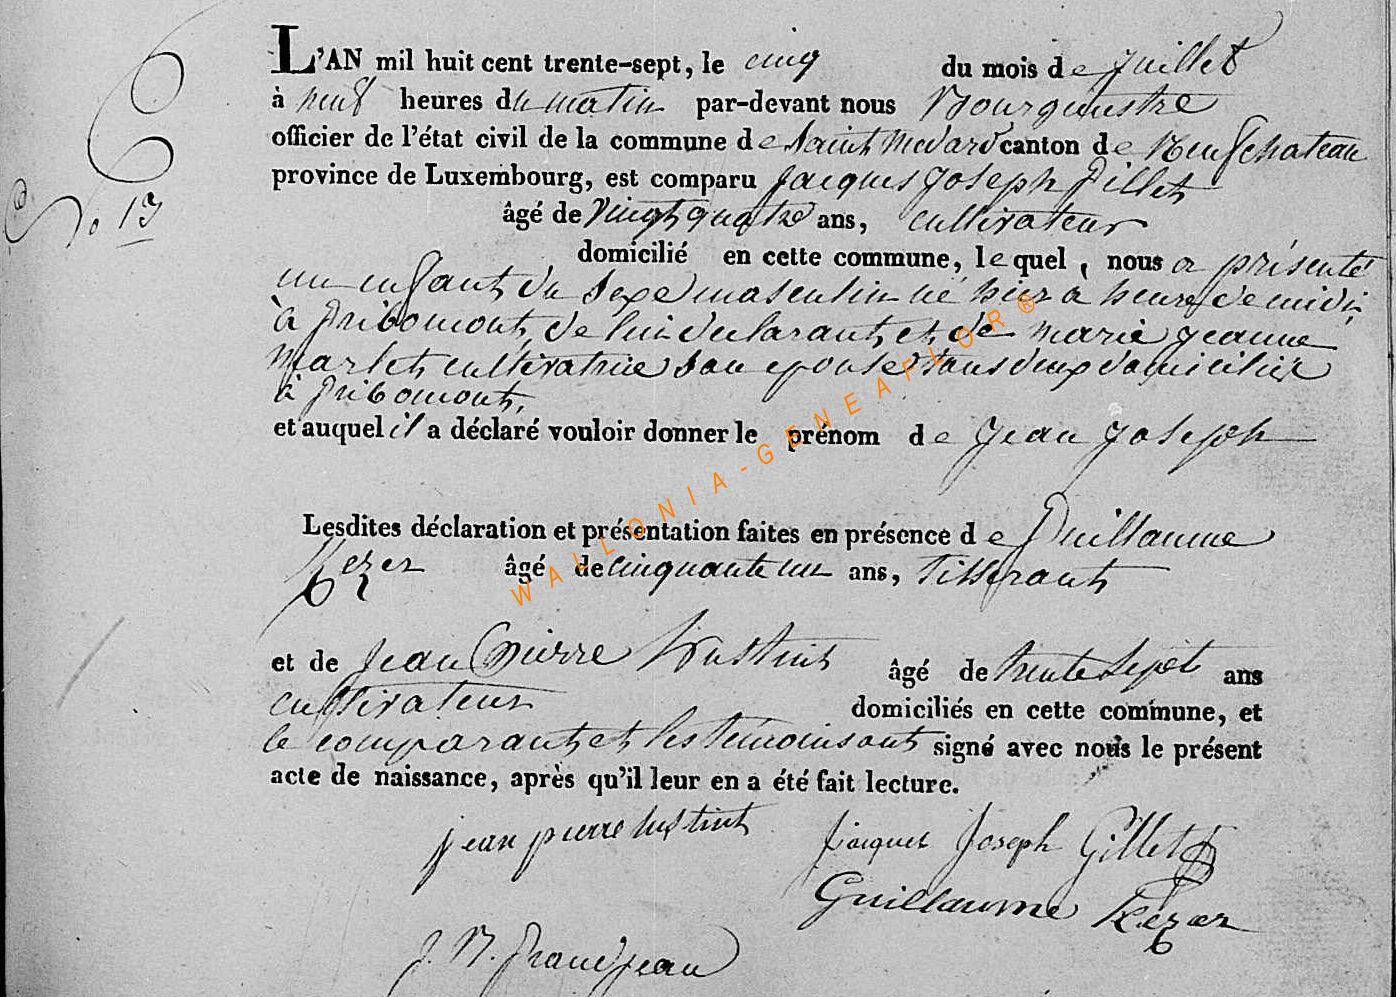 L'AN mil huit cent trente-sept, le cinq du mois de juillet
à neuf heures du matin par-devant nous Bourguestre
officier de l'état civil de la commune de Saint Medard canton de Neufchateau
No 13
province de Luxembourg, est comparu Jacques Joseph Gillet
âgé de vingt quatre ans, cultivateur
domicilié en cette commune, le quel, nous a présenté
un enfant du sexe masculin né hier a heure de midi
à Gribomont, de lui declarant, et de marie jeanne
marlet, cultivatrice son epouse tous deux domicilié
à Gribomont,
et auquel il a déclaré vouloir donner le prénom de Jean Joseph
Lesdites déclaration et présentation faites en présence de Guillaume
Kezer âgé de cinquante un ans, tisserant
et de Jean Pierre Lustint âgé de trente sept ans
cultivateur domiciliés en cette commune, et
le comparant, et les temoins ont signé avec nous le présent
acte de naissance, après qu'il leur en a été fait lecture.
jean pierre lustint Jacques Joseph Gillet
Guillaume Kezer
J. N. Grandjean
WALLONIA-GENEAFLOR®